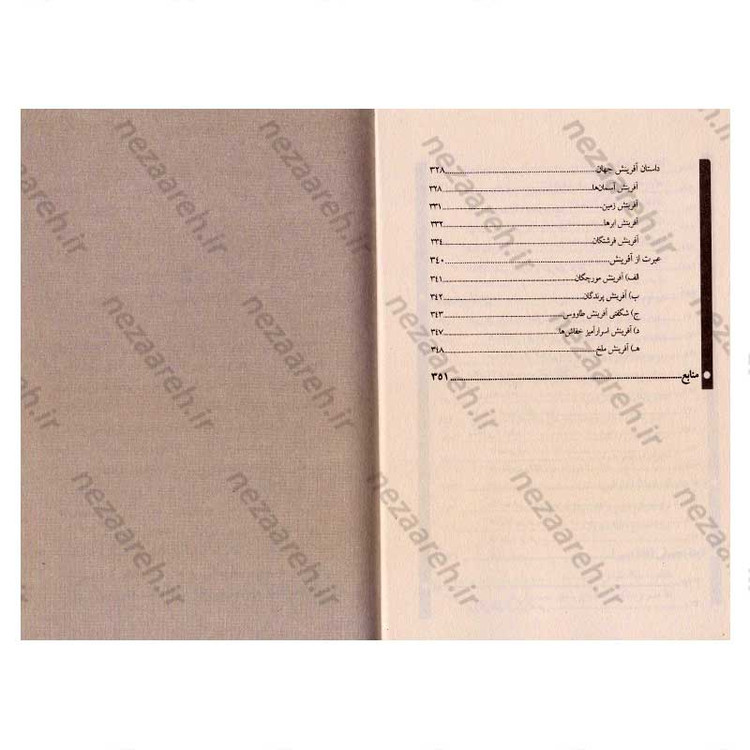 داستان آفرینش جهان..........۳۲۸
آفرینش آسمان‌ها..........۳۲۸
آفرینش زمین..........۳۳۱
آفرینش ابرها..........۳۳۲
آفرینش فرشتگان..........۳۳۴
عبرت از آفرینش..........۳۴۰
الف) آفرینش مورچگان..........۳۴۱
ب) آفرینش پرندگان..........۳۴۲
ج) شگفتی آفرینش طاووس..........۳۴۳
د) آفرینش اسرارآمیز خفاش‌ها..........۳۴۷
هـ) آفرینش ملخ..........۳۴۸
منابع..........۳۵۱
nezaareh.ir